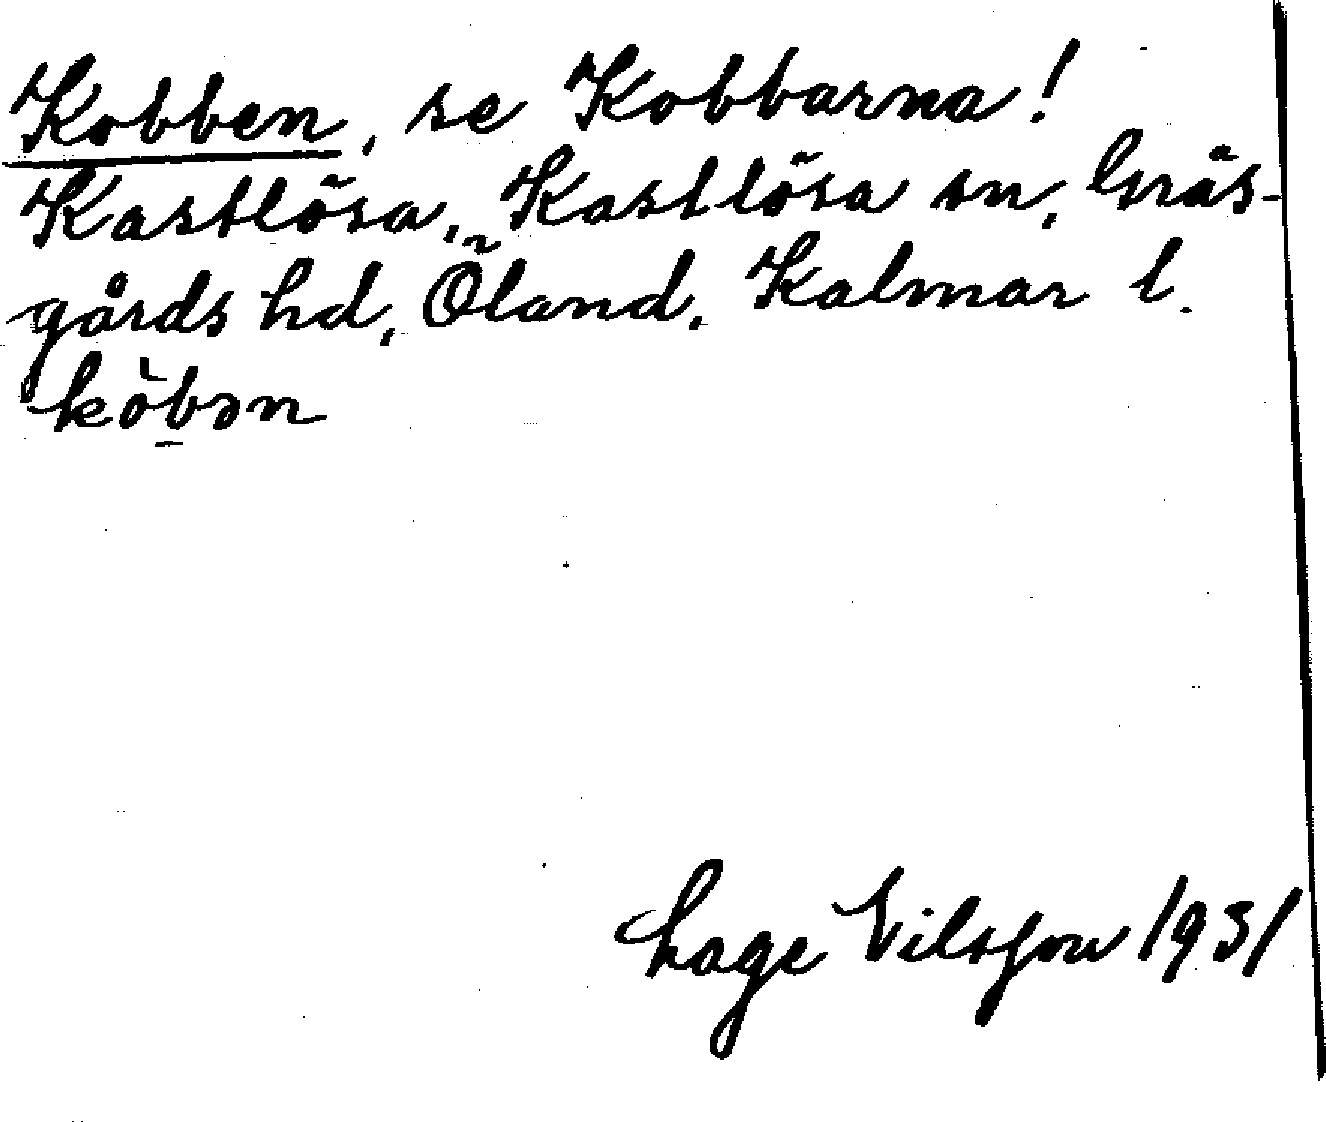 Kobben, se Kobbarna!
Kastlösa, Kastlösa sn, Gräs-
gårds hd, Öland, Kalmar l.
kòbən
1931